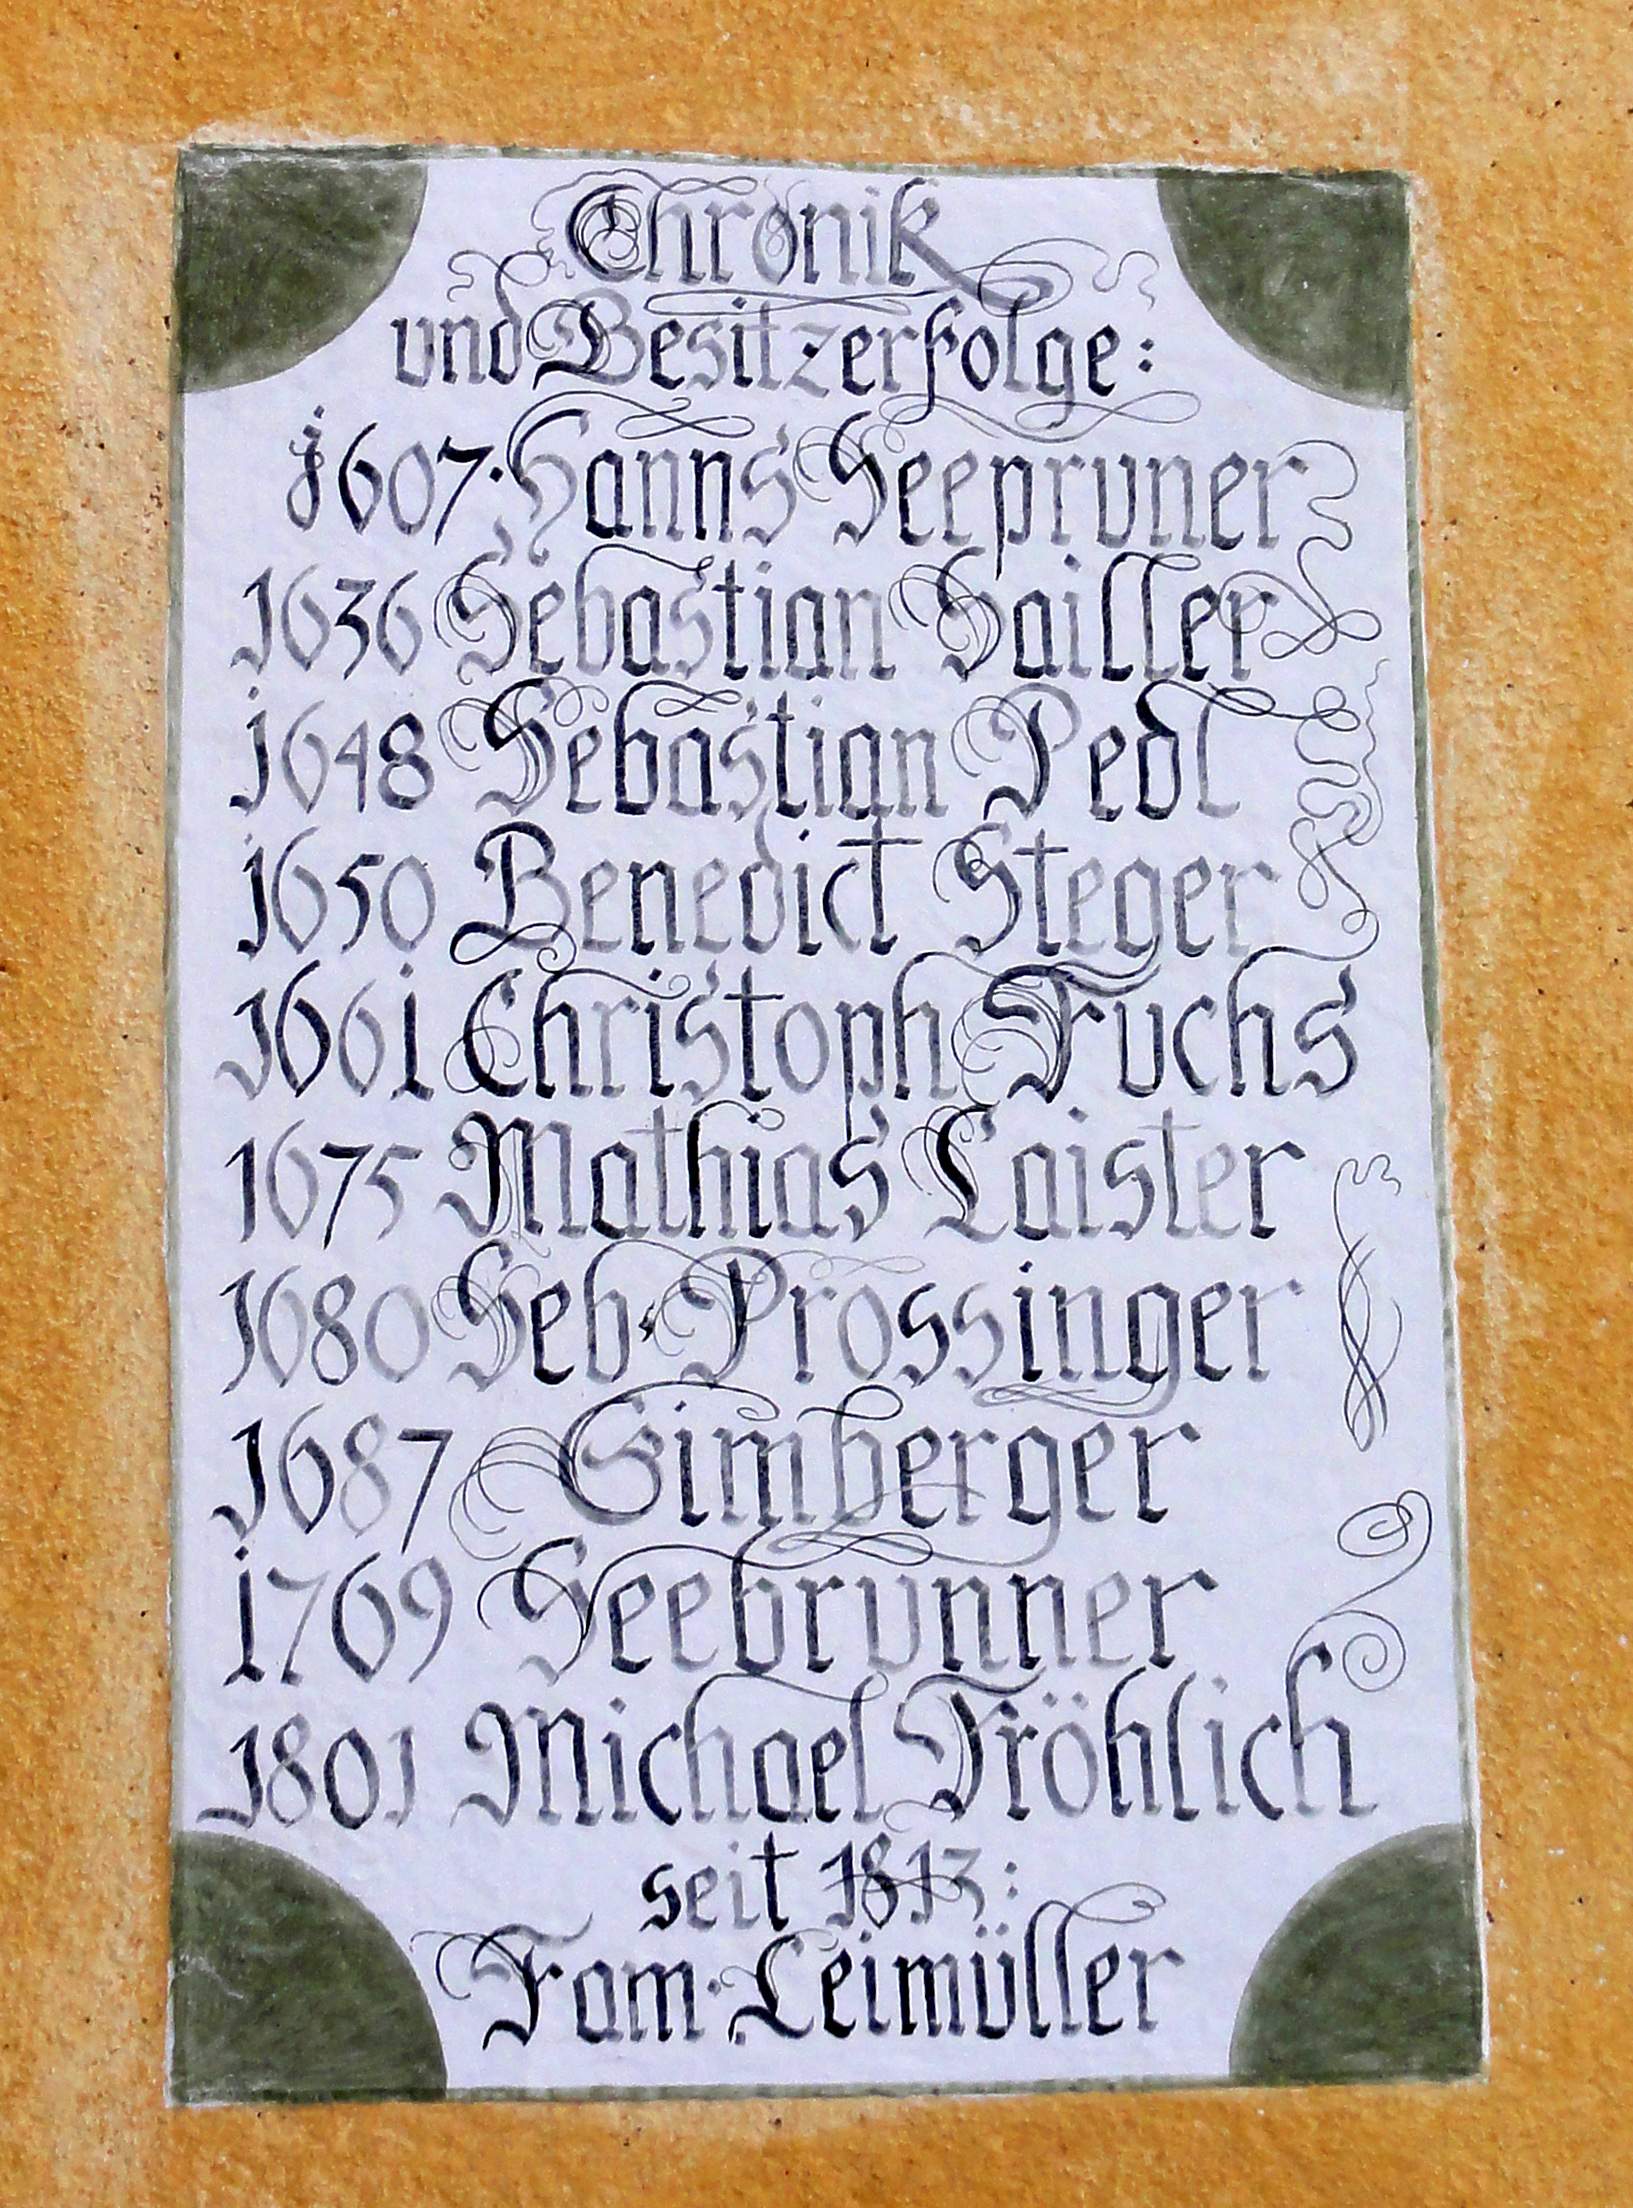 Chronik
und Besitzerfolge:
1607. Hanns Seepruner
1636 Sebastian Hailler
1648 Sebastian Pedl
1650 Benedict Steger
1661 Christoph Fuchs
1675 Mathias Laister
1680 Seb. Prossinger
1687 Gimberger
1769 Seebrunner
1801 Michael Fröhlich
seit 1813:
Fam. Leimüller